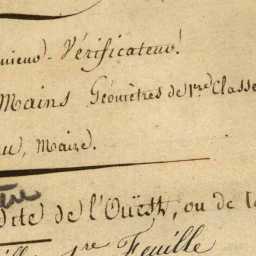 Vérificateur!
Mains Géomètres de 1re Classe
Maire.
dite de l'Ouëst, ou de la
1re Feuille